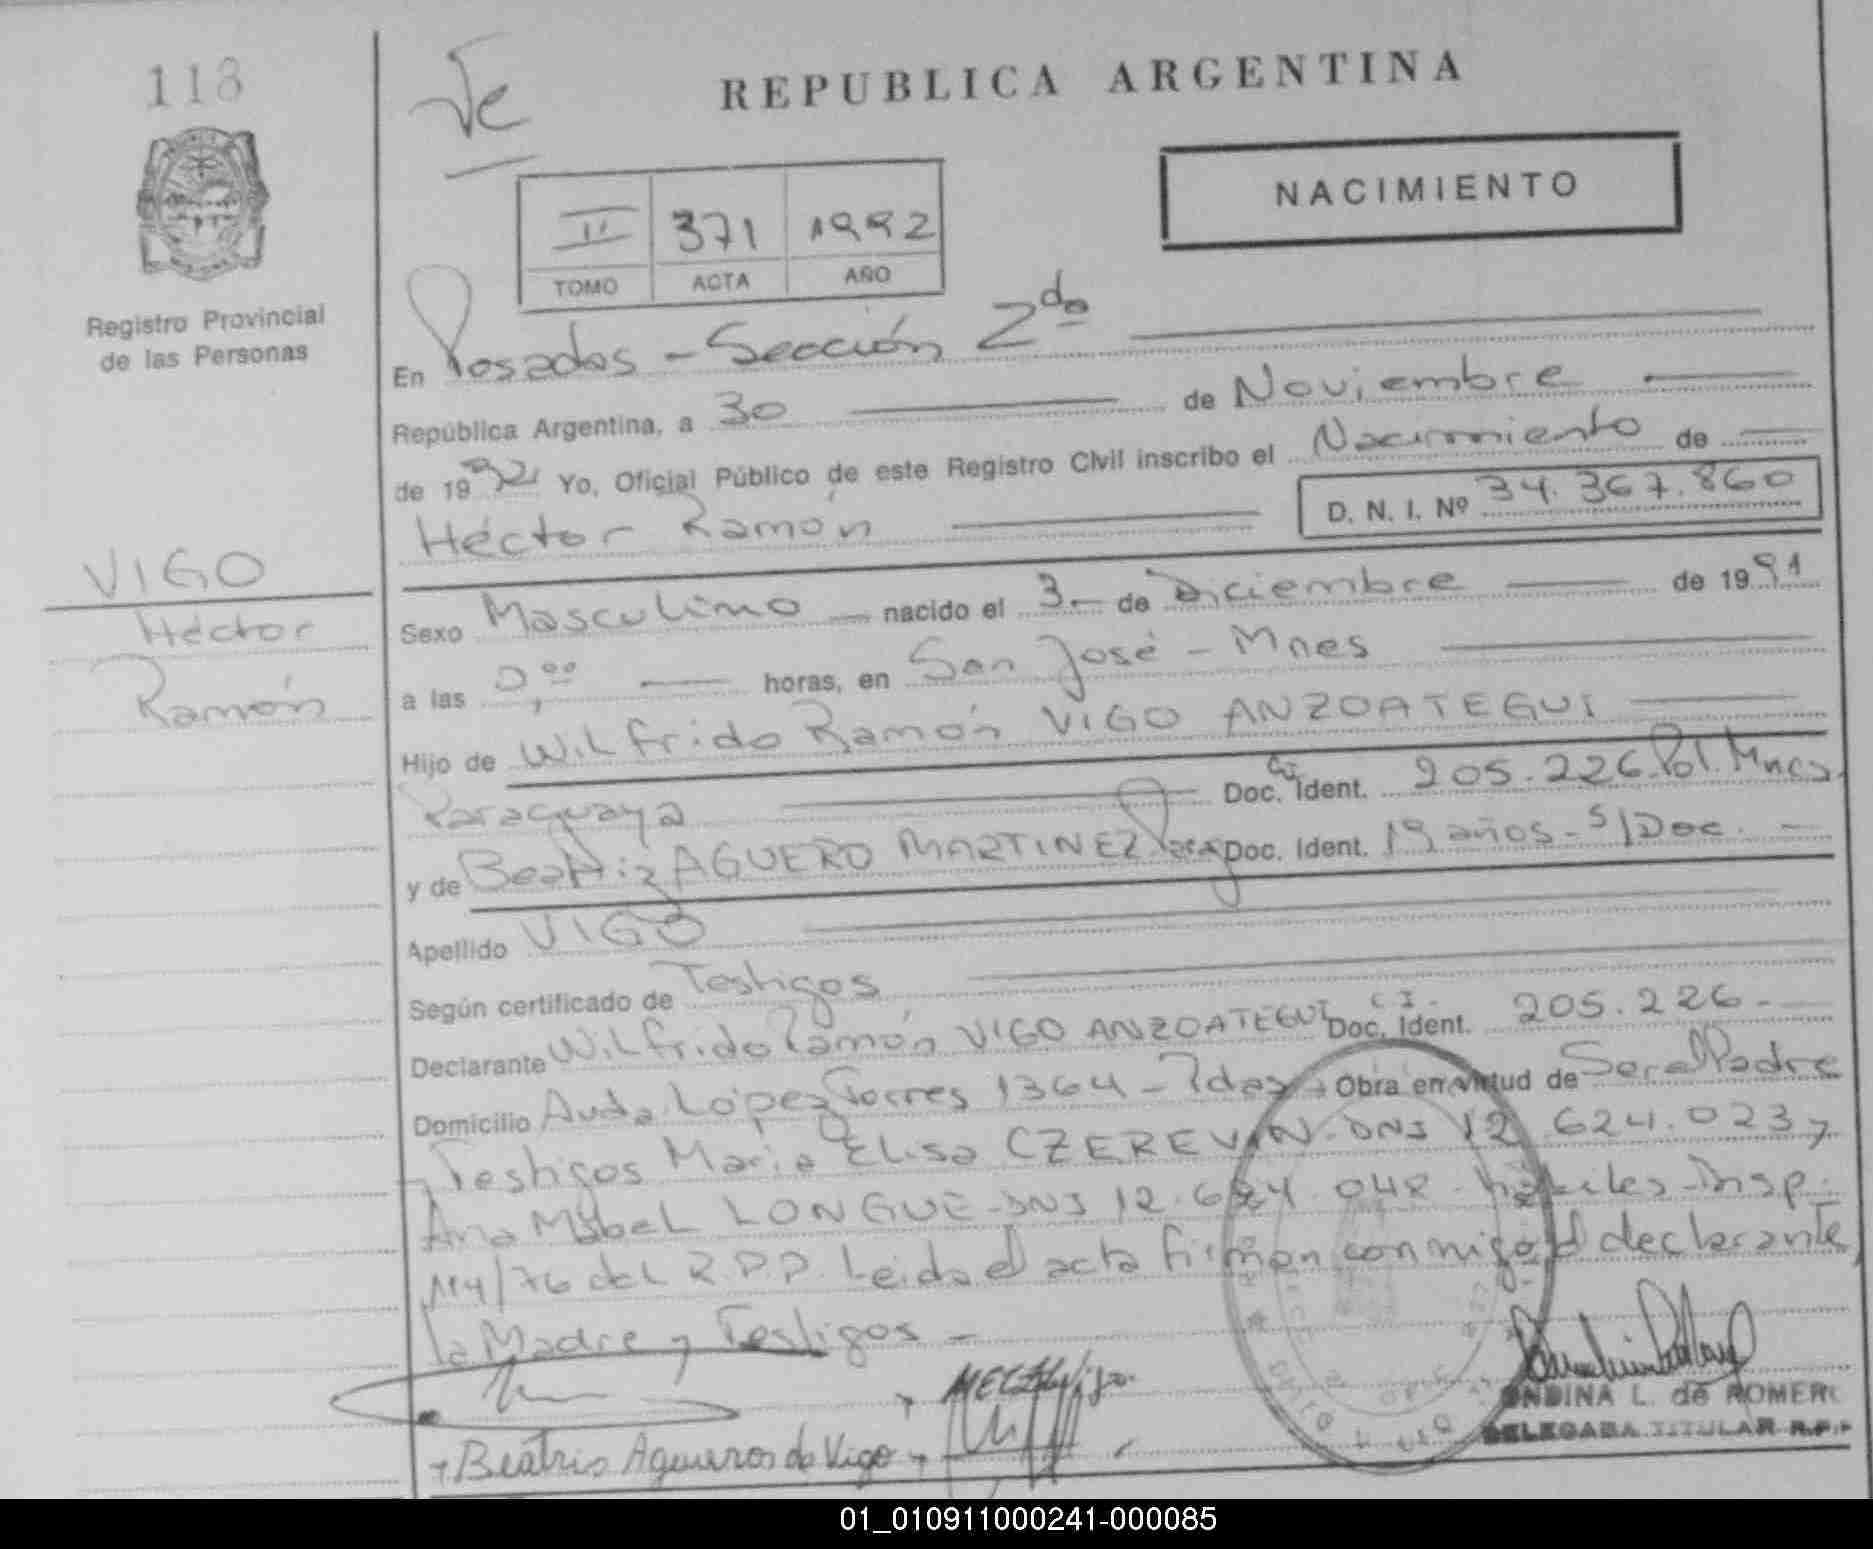 118
Registro Provincial
de las Personas
VIGO
Héctor
Ramón
REPUBLICA ARGENTINA
NACIMIENTO
II 371 1992
TOMO ACTA AÑO
En Posadas - Sección 2da
República Argentina, a 30 de Noviembre
de 1992 Yo, Oficial Público de este Registro Civil inscribo el Nacimiento de
Héctor Ramón D. N. I. Nº 34.367.860
Sexo Masculino nacido el 3 de Diciembre de 1991
a las 0,00 horas, en San José - Mnes
Hijo de Wilfrido Ramón VIGO ANZOATEGUI
Paraguaya CI Doc. Ident. 205.226 Pol. Mnes.
y de Beatriz AGUERO MARTINEZ Doc. Ident. 19 años - S/Doc. -
Apellido VIGO
Según certificado de Testigos
Declarante Wilfrido Ramón VIGO ANZOATEGUI C.I. Doc. Ident. 205.226 -
Domicilio Avda. López Torres 1364 - Pdas, Obra en virtud de Ser el Padre
Testigos María Elisa CZEREVIN - DNI 12.624.023 y
Ana Mabel LONGUE - DNI 12.624.042 - hábiles - Disp.
114/76 del R.P.P. Leida el acta firman conmigo el declarante,
la Madre y Testigos -
Beatris Agueros de Vigo
ONDINA L. de ROMERO
DELEGADA TITULAR R.P.P.
01_010911000241-000085